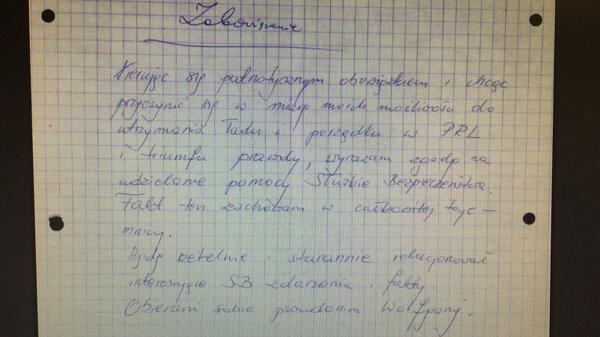 Zobowiązanie
Kierując się patriotycznym obowiązkiem i chcąc
przyczynić się w miarę moich możliwości do
utrzymania ładu i porządku w PRL
i triumfu prawdy, wyrażam zgodę na
udzielanie pomocy Służbie Bezpieczeństwa.
Fakt ten zachowam w całkowitej taje-
mnicy.
Będę rzetelnie i starannie relacjonował
interesujące SB zdarzenia i fakty.
Obieram sobie pseudonim